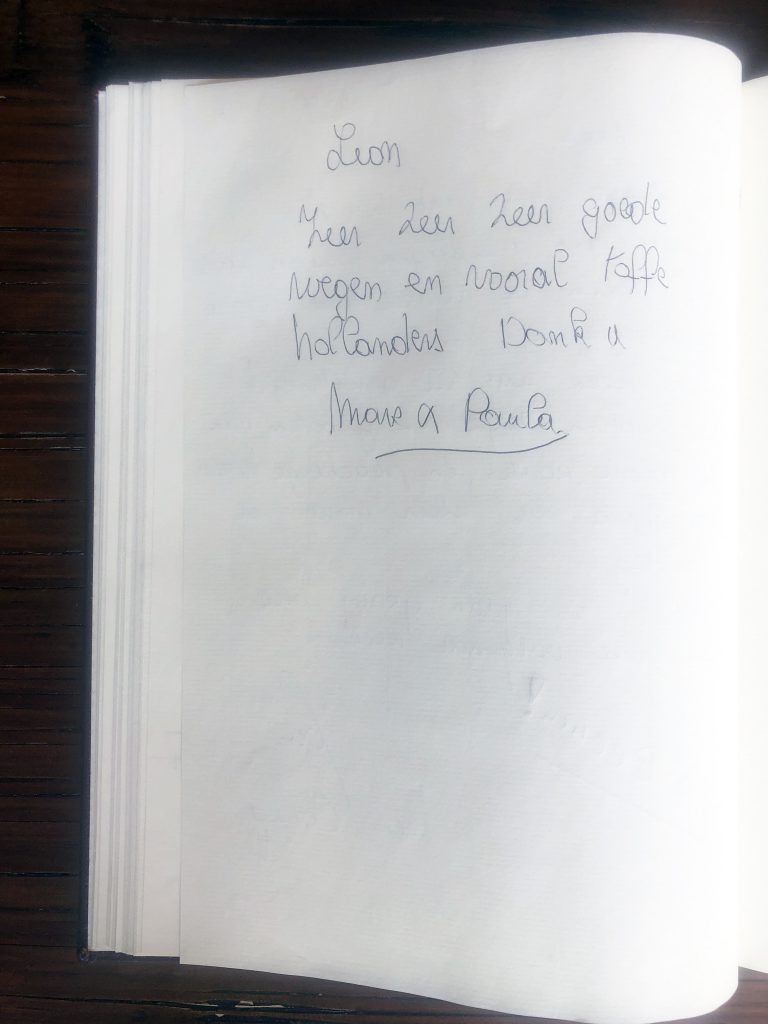 Leon
Zeer Zeer Zeer goede
wegen en vooral toffe
hollanders Dank u
Marc & Paula.